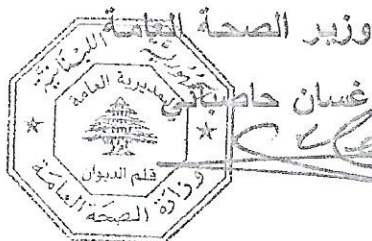 وزير الصحة العامة
غسان حاصباني
الجمهورية اللبنانية
المديرية العامة
قلم الديوان
وزارة الصحة العامة